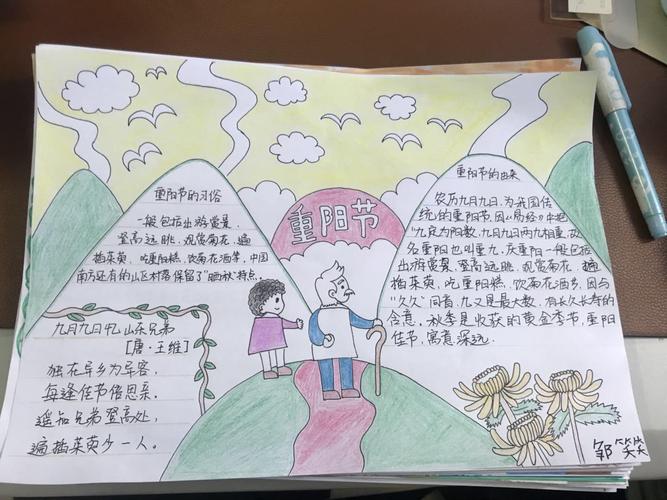 重阳节的习俗
一般包括出游赏景、
登高远眺、观赏菊花、遍
插茱萸、吃重阳糕、饮菊花酒等,中国
南方还有的山区村落保留了"晒秋"特点。
九月九日忆山东兄弟
[唐·王维]
独在异乡为异客,
每逢佳节倍思亲。
遥知兄弟登高处,
遍插茱萸少一人。
重阳节
重阳节的由来
农历九月九日,为我国传
统的重阳节,因《易经》中把
"九"定为阳数,九月九日两九相重,故
名重阳也叫重九,庆重阳一般包括
出游赏景、登高远眺、观赏菊花、遍
插茱萸、吃重阳糕、饮菊花酒等,因与
"久久"同音,九又是最大数,有长久长寿的
含意,秋季是收获的黄金季节,重阳
佳节,寓意深远.
邹笑笑